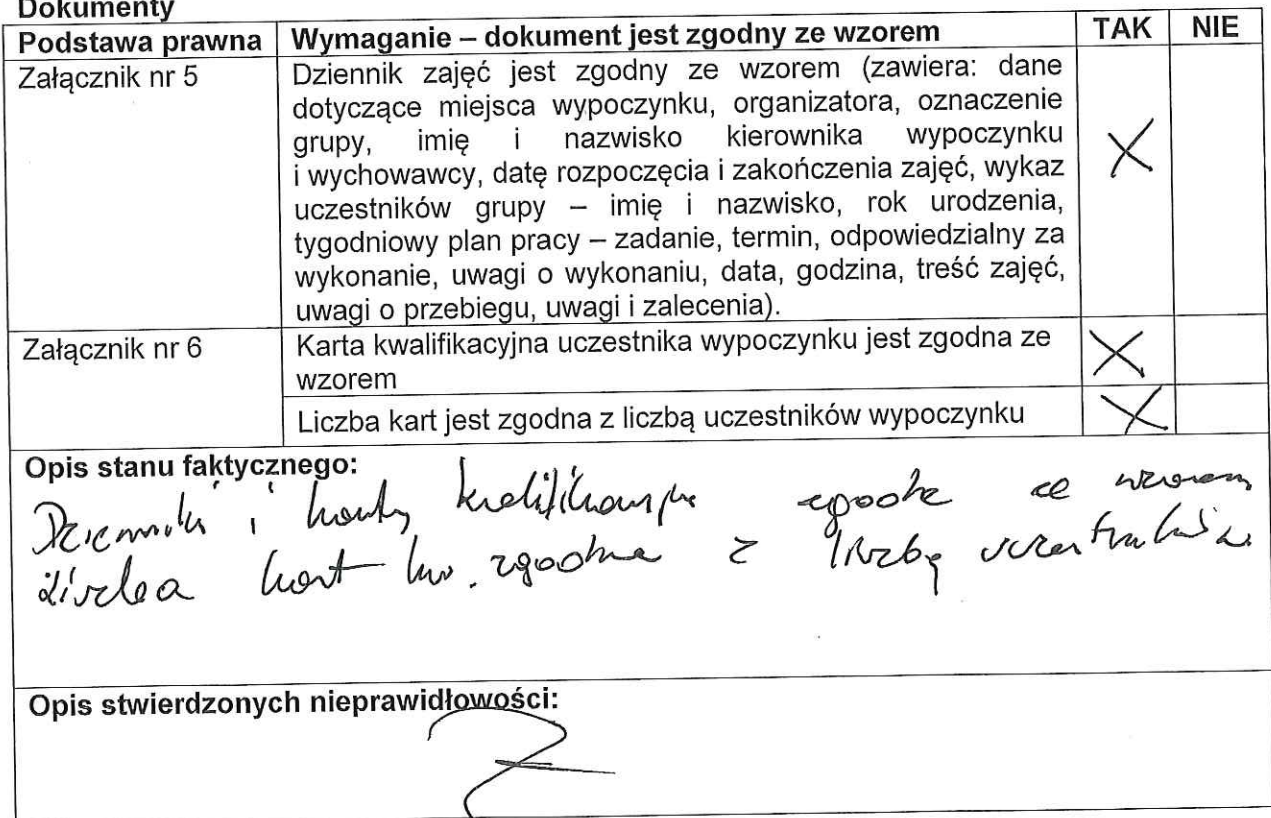 Dokumenty
Podstawa prawna Wymaganie – dokument jest zgodny ze wzorem TAK NIE
Załącznik nr 5
Dziennik zajęć jest zgodny ze wzorem (zawiera: dane
dotyczące miejsca wypoczynku, organizatora, oznaczenie
grupy, imię i nazwisko kierownika wypoczynku
i wychowawcy, datę rozpoczęcia i zakończenia zajęć, wykaz
uczestników grupy – imię i nazwisko, rok urodzenia,
tygodniowy plan pracy – zadanie, termin, odpowiedzialny za
wykonanie, uwagi o wykonaniu, data, godzina, treść zajęć,
uwagi o przebiegu, uwagi i zalecenia).
X
Załącznik nr 6
Karta kwalifikacyjna uczestnika wypoczynku jest zgodna ze
wzorem
X
Liczba kart jest zgodna z liczbą uczestników wypoczynku
X
Opis stanu faktycznego:
Dzienniki i karty kwalifikacyjne zgodne ze wzorem
Liczba kart kw. zgodna z liczbą uczestników.
Opis stwierdzonych nieprawidłowości: